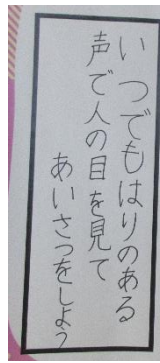 いつでもはりのある
声で人の目を見て
あいさつをしよう